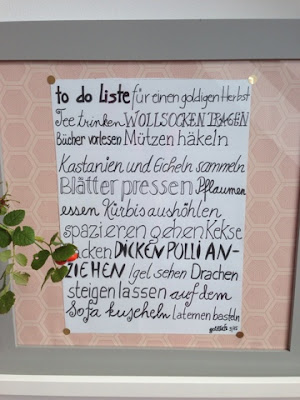 to do liste für einen goldigen Herbst
Tee trinken WOLLSOCKEN TRAGEN
Bücher vorlesen Mützen häkeln
Kastanien und Eicheln sammeln
Blätter pressen Pflaumen
essen Kürbis aushöhlen
spazieren gehen Kekse
backen DICKEN PULLI AN-
ZIEHEN Igel sehen Drachen
steigen lassen auf dem
Sofa kuscheln laternen basteln